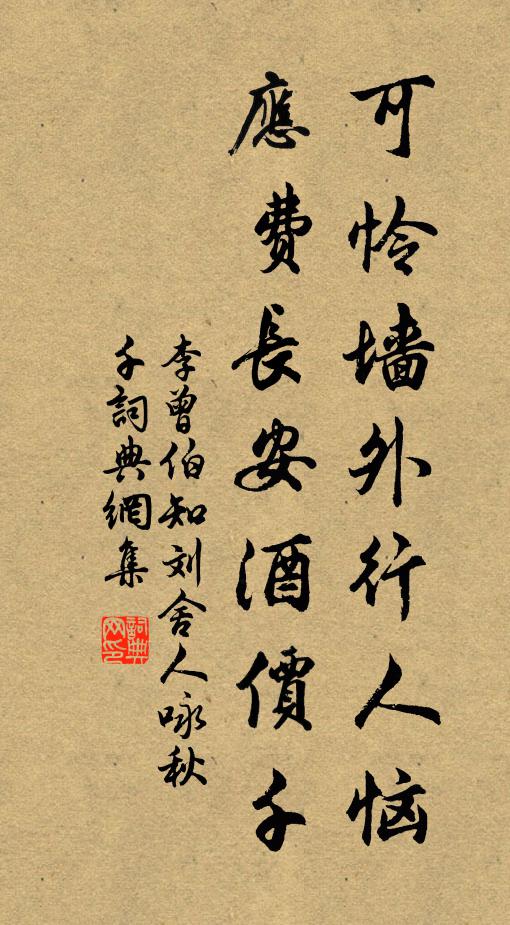 可怜墙外行人恼
應費長安酒價千
李曾伯知刘舍人咏秋
千詞典網集
詞典网印